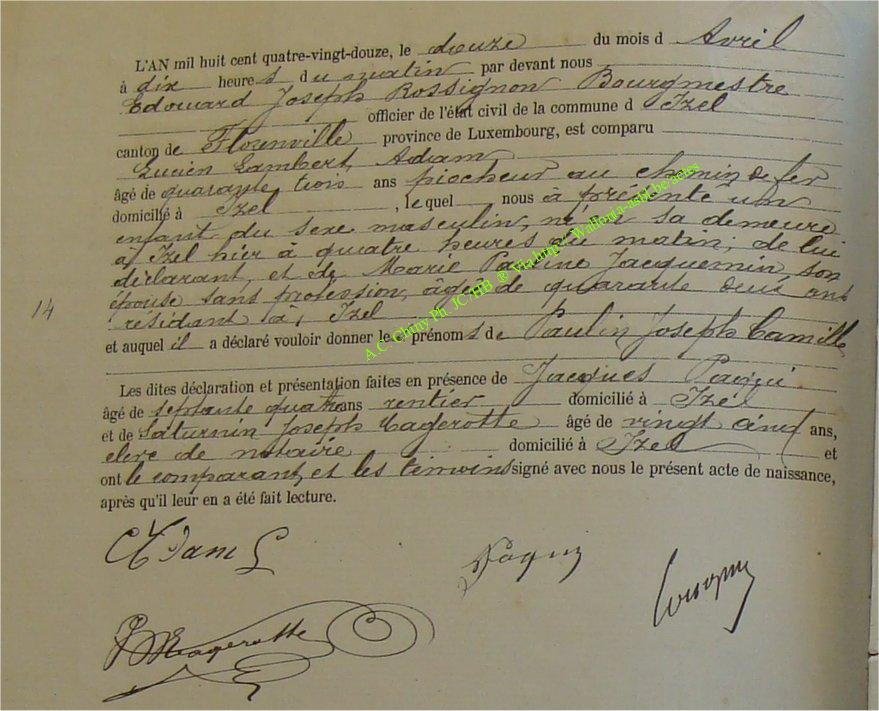 L'AN mil huit cent quatre-vingt-douze, le douze du mois d Avril
à dix heures du matin par devant nous
Edouard Joseph Rossignon Bourgmestre
officier de l'état civil de la commune d Izel
canton de Florenville province de Luxembourg, est comparu
Lucien Lambert Adam
âgé de quarante trois ans piocheur au chemin de fer
domicilié à Izel, lequel nous à présenté un
enfant du sexe masculin, né en sa demeure
à Izel hier à quatre heures du matin, de lui
déclarant, et de Marie Pauline Jacquemin, son
épouse sans profession, âgée de quarante deux ans
résidant à, Izel
14
et auquel il a déclaré vouloir donner les prénoms de Paulin Joseph Camille
Les dites déclaration et présentation faites en présence de Jacques
âgé de septante quatre ans rentier domicilié à Izel
et de Saturnin Joseph Magerotte âgé de vingt cinq ans,
clerc de notaire domicilié à Izel et
ont le comparant, et les témoins signé avec nous le présent acte de naissance,
après qu'il leur en a été fait lecture.
Adam L
Magerotte
A.C. Chiny Ph. JC7HB @ Via http://Wallonia-asbl.be/actes